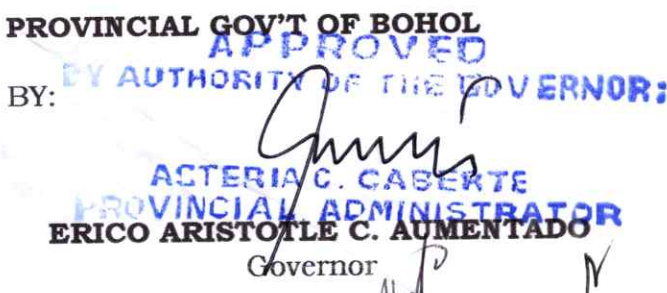 PROVINCIAL GOV'T OF BOHOL
APPROVED
BY AUTHORITY OF THE GOVERNOR:
BY:
ASTERIA C. CABERTE
PROVINCIAL ADMINISTRATOR
ERICO ARISTOTLE C. AUMENTADO
Governor